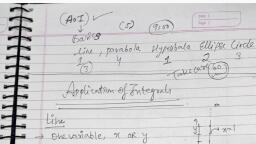 (AOI) ✓
(5) 9:00
Basics
Line, parabola Hyperbola Ellipse Circle
1 4 1 2 3
(3)
Application of Integrals
Line
→ One variable, x OR y